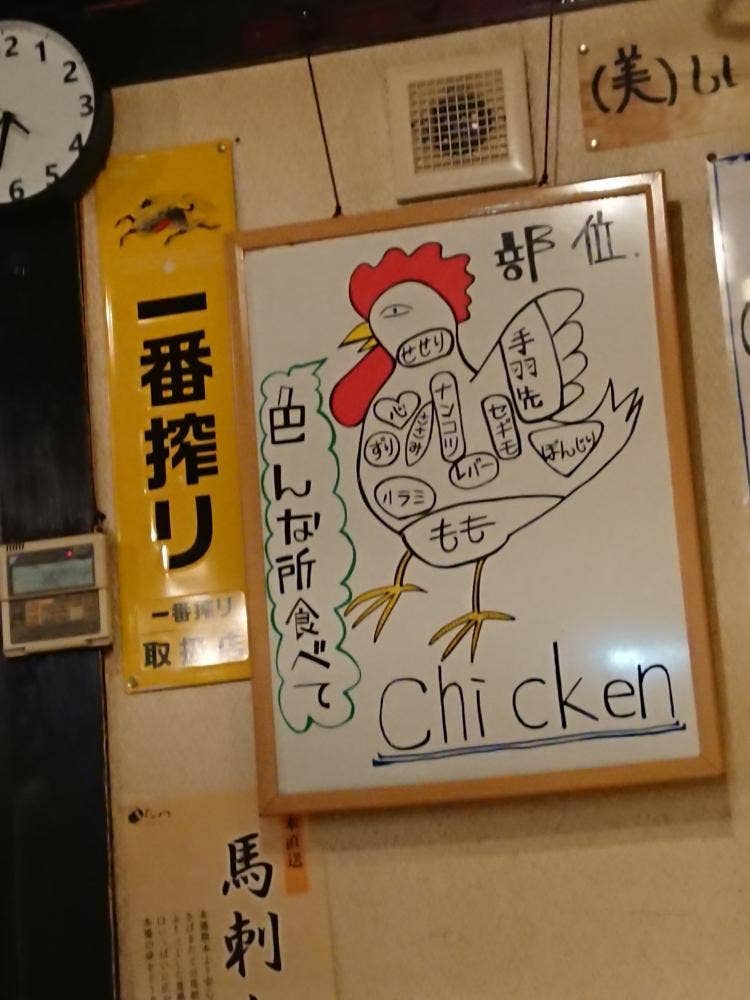 2
1
2
3
4
5
6
(美)しい
一番搾り
一番搾り
取扱店
部位.
せせり
手羽先
心
ささみ
ナンコツ
セギモ
ずり
レバー
ぼんじり
ハラミ
もも
色んな所食べて
Chicken
直送
馬刺